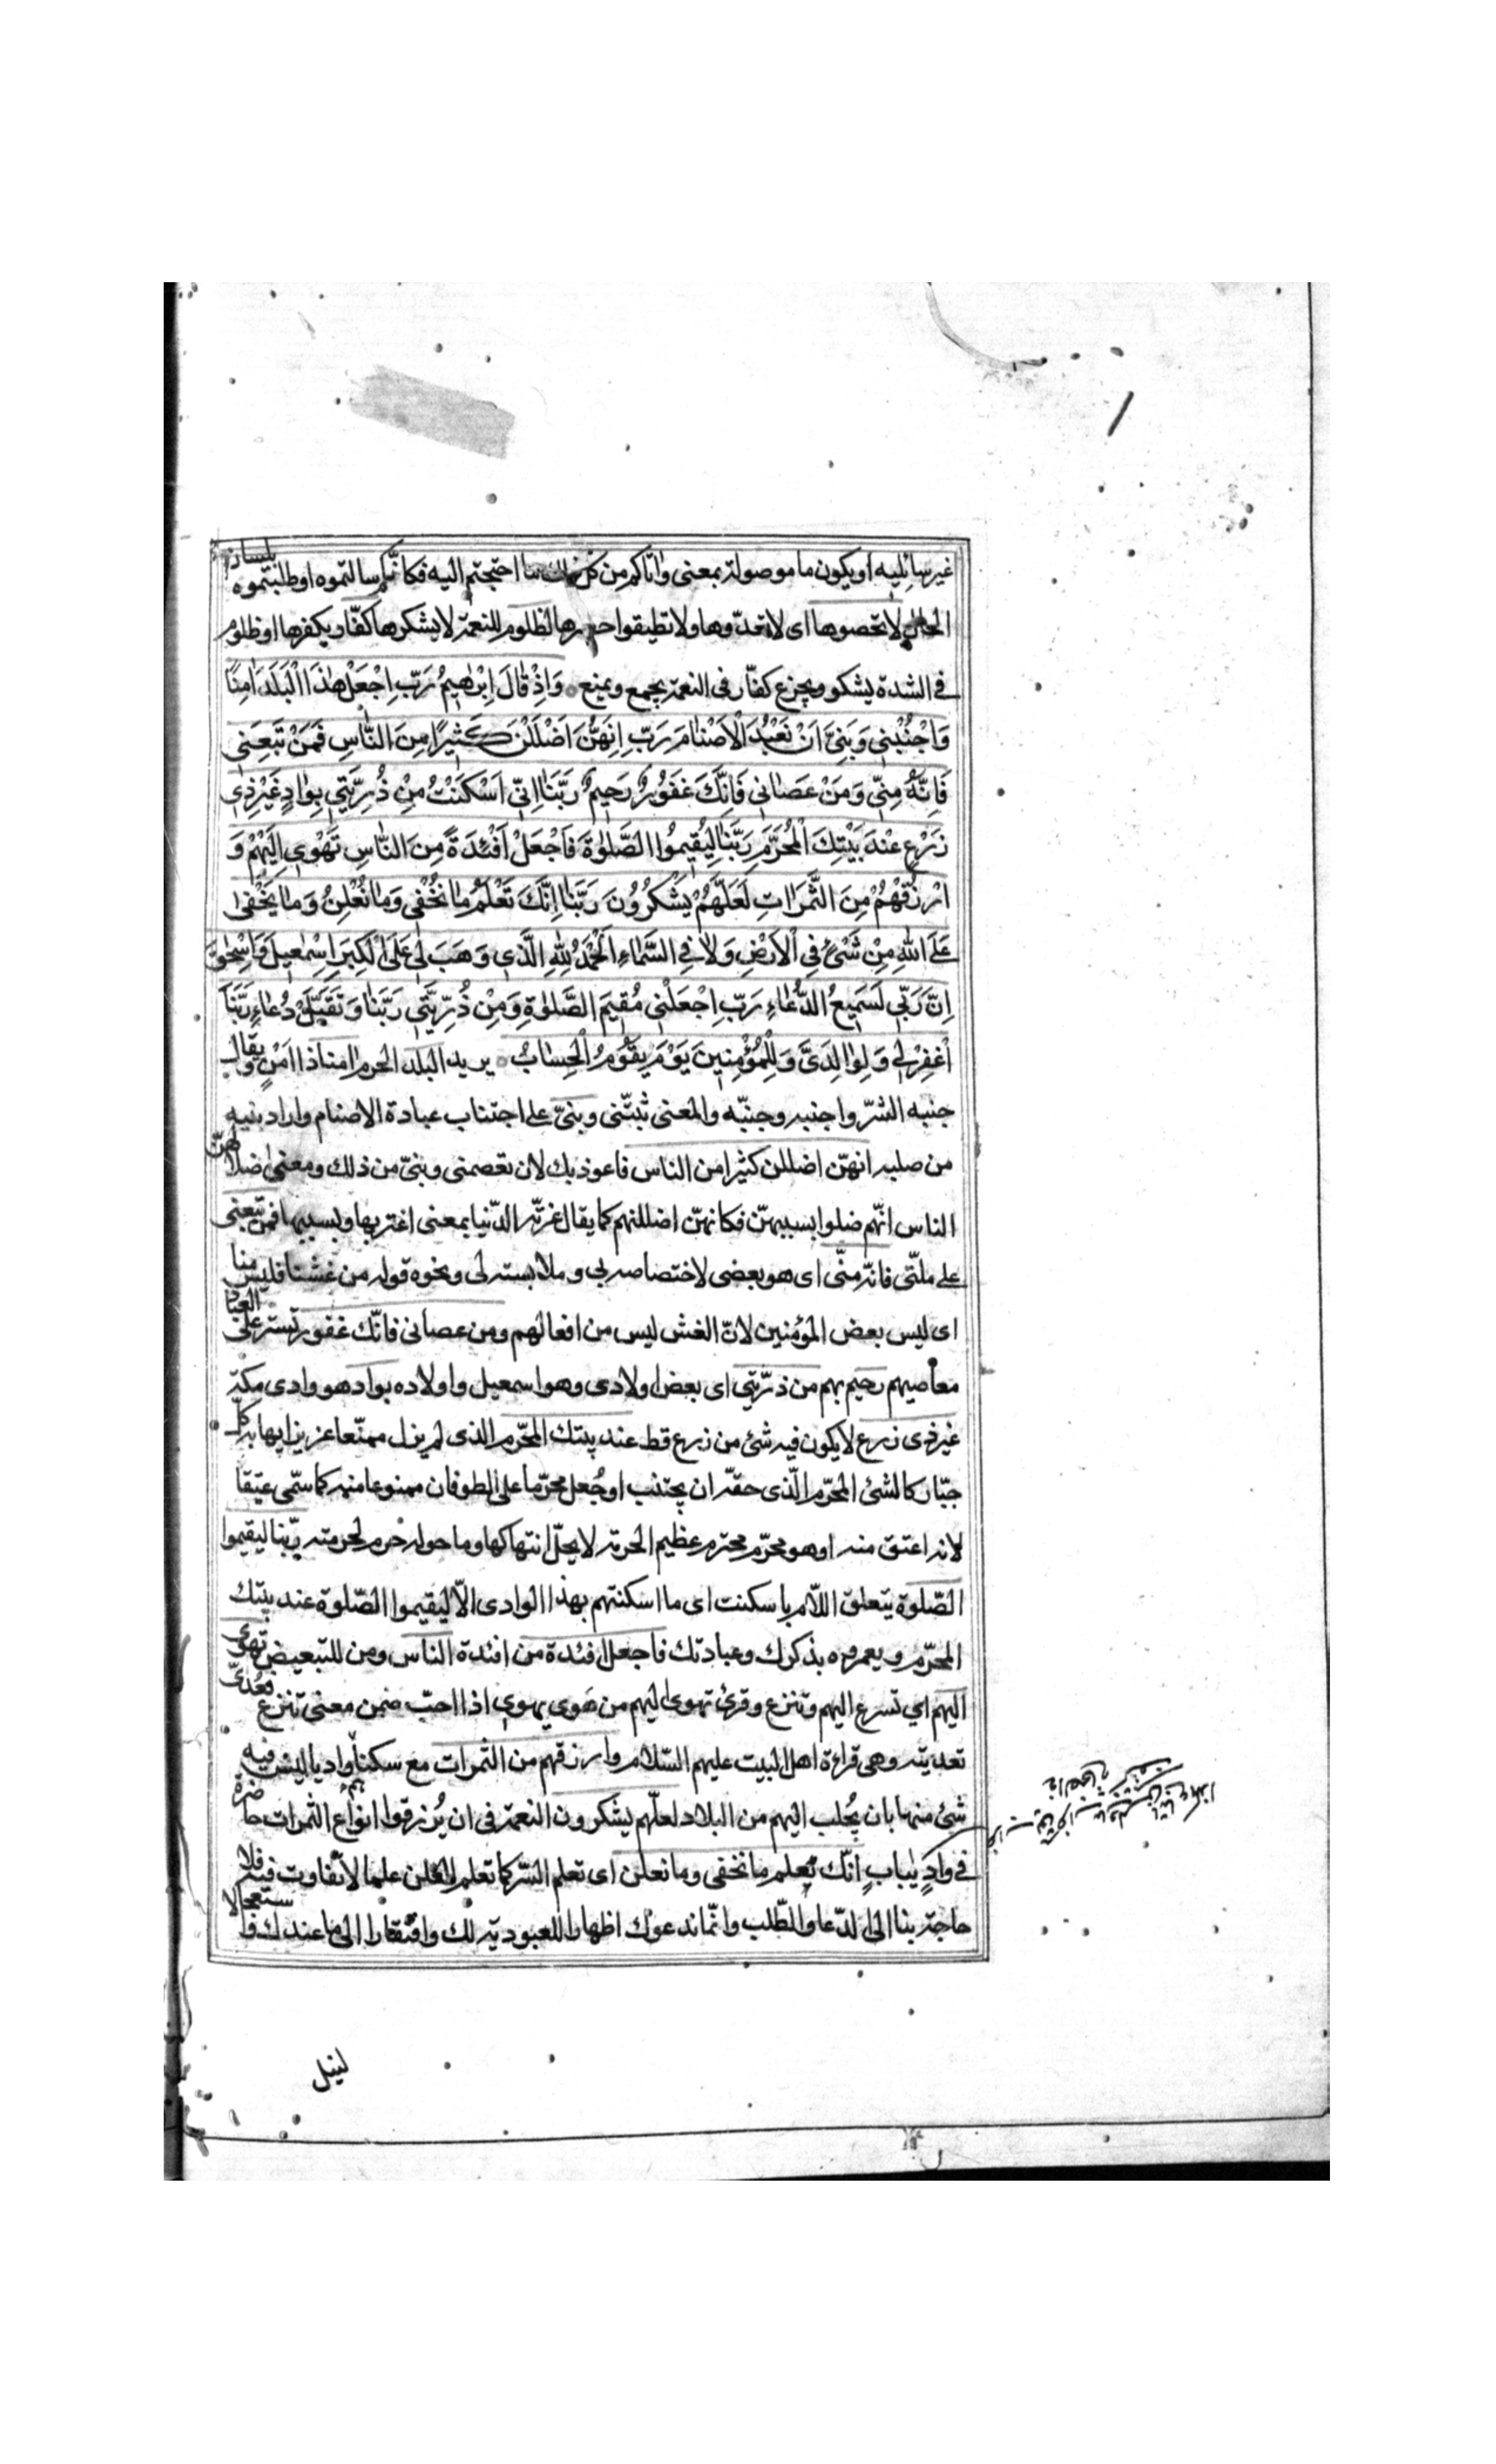 غير سائليه او يكون ما موصولة بمعنى واتاكم من كل ذلك ما احتجتم اليه فكانكم سالتموه او طلبتموه بلسان
الحال لا تحصوها اى لا تعدّوها ولا تطيقوا حصرها لظلوم للنعمة لا يشكرها كفّار يكفرها او ظلوم
فى الشدة يشكو ويجزع كفّار فى النعمة يجمع ويمنع وَاِذْ قٰالَ اِبْرٰهيمُ رَبِّ اجْعَلْ هٰذَا الْبَلَدَ اٰمِنًا
وَاجْنُبْنى وَبَنِىَّ اَنْ نَعْبُدَ الْاَصْنٰامَ رَبِّ اِنَّهُنَّ اَضْلَلْنَ كَثيرًا مِنَ النّٰاسِ فَمَنْ تَبِعَنى
فَاِنَّهُ مِنّى وَمَنْ عَصٰانى فَاِنَّكَ غَفُورٌ رَحيمٌ رَبَّنٰا اِنّى اَسْكَنْتُ مِنْ ذُرِّيَّتى بِوٰادٍ غَيْرِ ذى
زَرْعٍ عِنْدَ بَيْتِكَ الْمُحَرَّمِ رَبَّنٰا لِيُقيمُوا الصَّلٰوةَ فَاجْعَلْ اَفْئِدَةً مِنَ النّٰاسِ تَهْوى اِلَيْهِمْ وَ
ارْزُقْهُمْ مِنَ الثَّمَرٰاتِ لَعَلَّهُمْ يَشْكُرُونَ رَبَّنٰا اِنَّكَ تَعْلَمُ مٰا نُخْفى وَمٰا نُعْلِنُ وَمٰا يَخْفىٰ
عَلَى اللّٰهِ مِنْ شَىْءٍ فِى الْاَرْضِ وَلاٰ فِى السَّمٰاءِ اَلْحَمْدُ لِلّٰهِ الَّذى وَهَبَ لى عَلَى الْكِبَرِ اِسْمٰعيلَ وَاِسْحٰقَ
اِنَّ رَبّى لَسَميعُ الدُّعٰاءِ رَبِّ اجْعَلْنى مُقيمَ الصَّلٰوةِ وَمِنْ ذُرِّيَّتى رَبَّنٰا وَتَقَبَّلْ دُعٰاءِ رَبَّنَا
اغْفِرْ لى وَلِوٰالِدَىَّ وَلِلْمُؤْمِنينَ يَوْمَ يَقُومُ الْحِسٰابُ يريد البلد الحرم امنا ذا امنٍ ويقال
جنبه الشرّ واجنبه وجنّبه والمعنى ثبّتنى وبنىّ على اجتناب عبادة الاصنام واراد بنيه
من صلبه انهنّ اضللن كثيرا من الناس فاعوذ بك لان تعصمنى وبنىّ من ذلك ومعنى اضلالهنّ
الناس انّهم ضلوا بسببهنّ فكانهنّ اضللنهم كما يقال غرّته الدّنيا بمعنى اغتر بها وبسببها فمن تبعنى
على ملّتى فانه منّى اى هو بعضى لاختصاصه بى وملابسته لى ونحوه قوله من غشنا فليس منا
اى ليس بعض المؤمنين لانّ الغش ليس من افعالهم ومن عصانى فانّك غفور تستر على العباد
معاصيهم رحيم بهم من ذرّيتى اى بعض اولادى وهو اسمعيل واولاده بواد هو وادى مكة
غير ذى زرع لا يكون فيه شئ من زرع قط عند بيتك المحرّم الذى لم يزل ممنّعا عزيزا يهابه كل
جبّار كالشئ المحرّم الّذى حقه ان يجتنب او جُعل محرّما على الطوفان ممنوعا منه كما سمّى عتيقا
لانه اعتق منه او هو محرّم محترم عظيم الحرمة لا يحلّ انتهاكها وما حوله حرم لحرمته ربّنا ليقيموا
الصّلوة يتعلق اللّام باسكنت اى ما اسكنتهم بهذا الوادى الّا ليقيموا الصّلوة عند بيتك
المحرّم ويعمروه بذكرك وعبادتك فاجعل افئدة من افئدة الناس ومن للتبعيض تهوى
اليهم اى تسرع اليهم وتنزع وقرئ تهوى اليهم من هَوى يهوى اذا احبّ ضمن معنى تنزع فعُدّى
تعديته وهى قراءة اهل البيت عليهم السّلام وارزقهم من الثمرات مع سكناهم واديا ليس فيه
شئ منها بان يُجلب اليهم من البلاد لعلّهم يشكرون النعمة فى ان يُرزقوا انواع الثمرات حاضرة
فى وادٍ يبابٍ انّك تعلم ما نخفى وما نعلن اى تعلم السّر كما تعلم العلن علما لا تفاوت فيه فلا
حاجة بنا الى الدّعاء والطّلب وانّما ندعوك اظهارا للعبودية لك وافتقارا الى ما عندك واستعجالا
لنيل